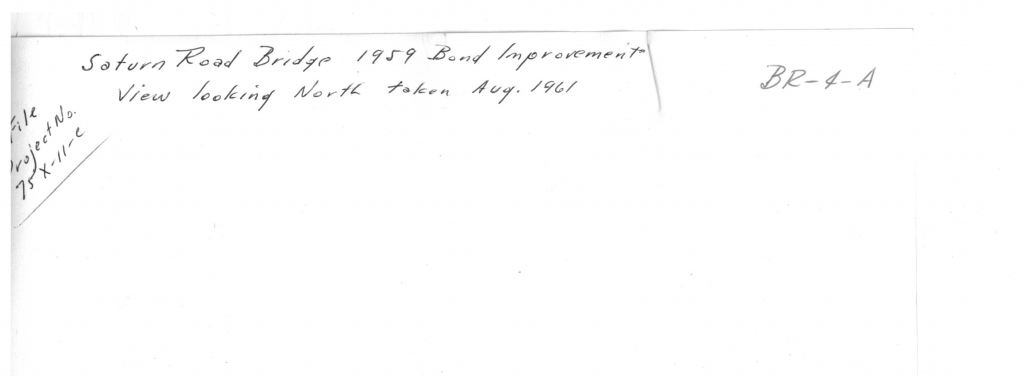 Saturn Road Bridge 1959 Bond Improvement
View looking North taken Aug. 1961
BR-4-A
File
Project No.
75X-11-e